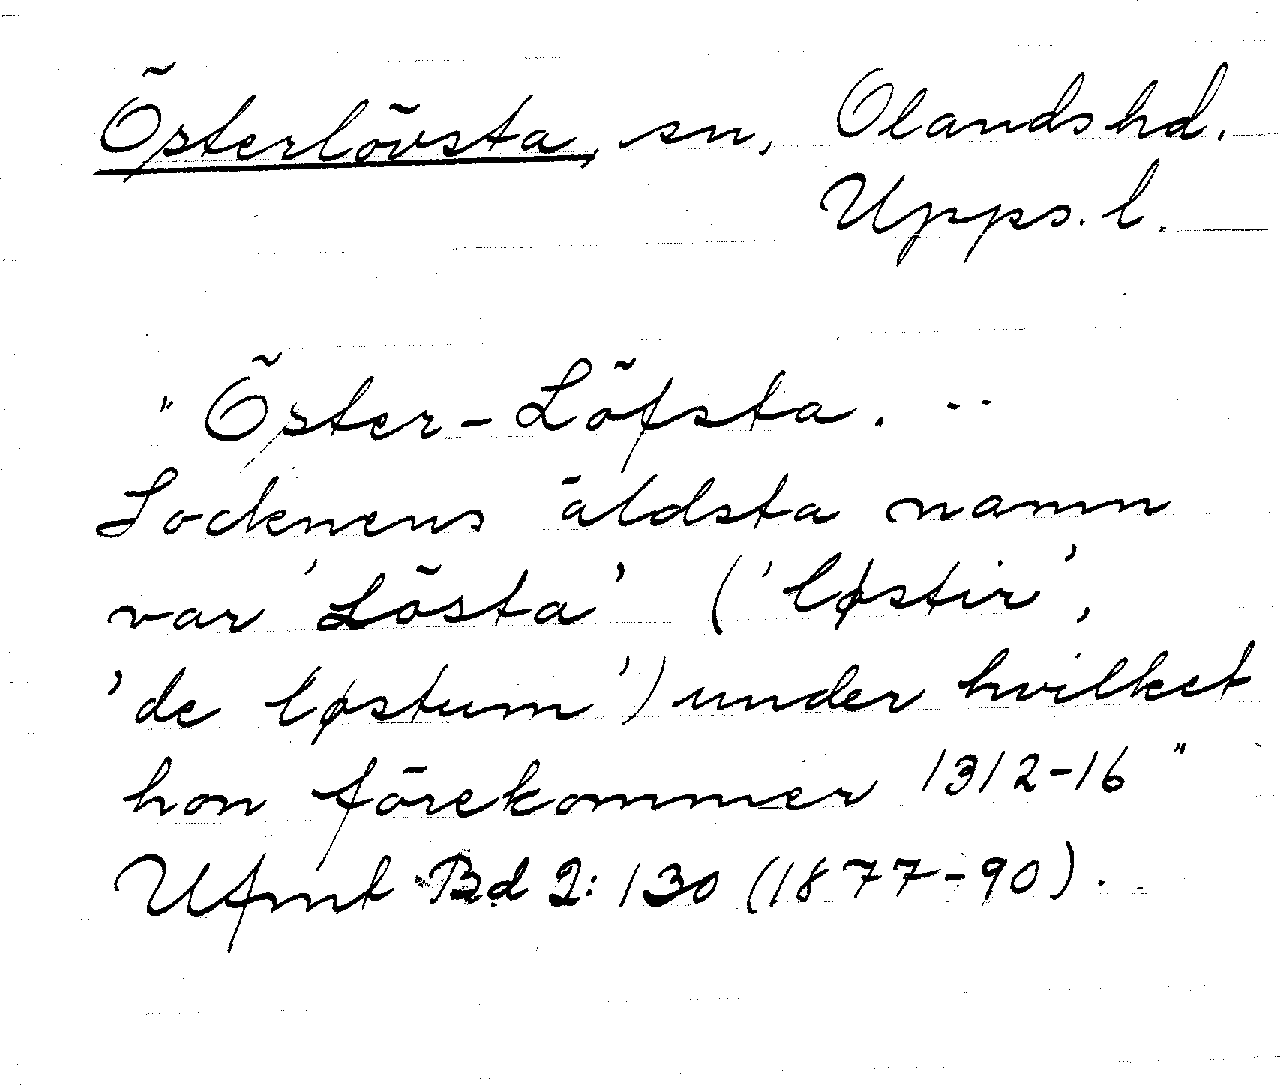 Österlövsta, sn, Olandshd.
Upps. l.
"Öster-Löfsta. --
Socknens äldsta namn
var 'Lösta' ('løstir',
'de løstum') under hvilket
hon förekommer 1312-16"
Ufmt Bd 2: 130 (1877-90).